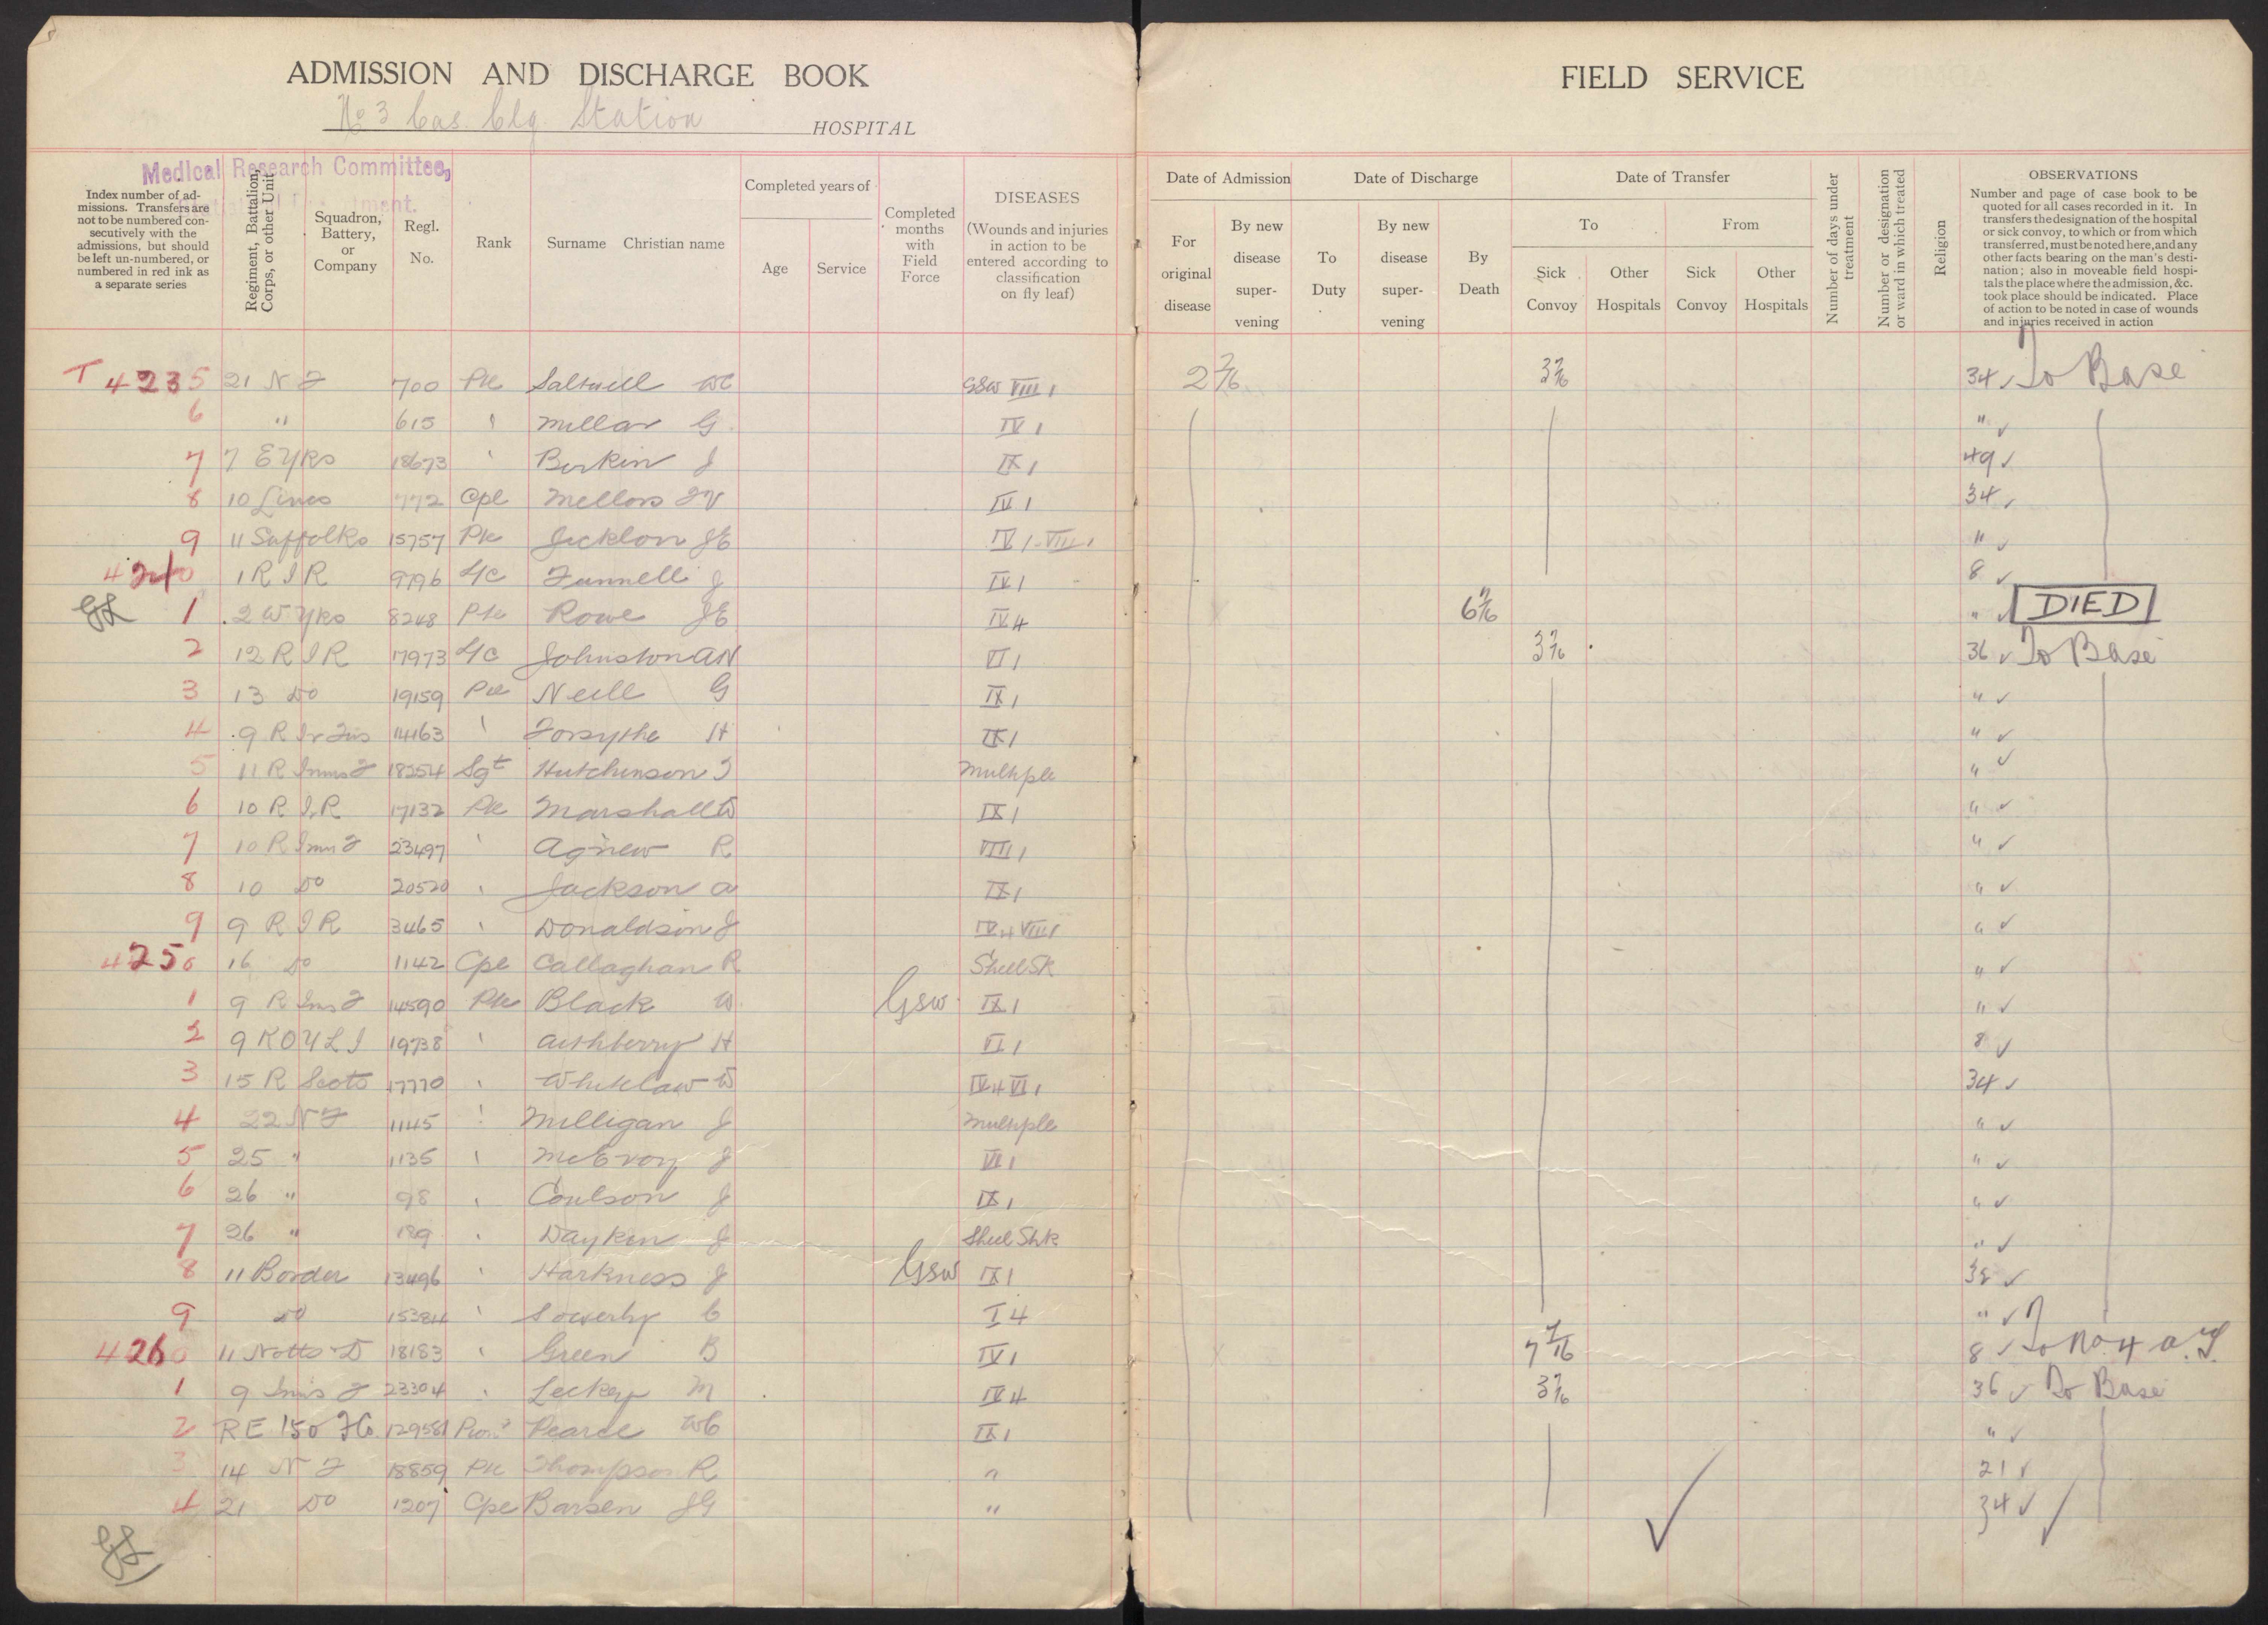 ADMISSION AND DISCHARGE BOOK
No 3 Cas. Clg. Station HOSPITAL
FIELD SERVICE
Medical Research Committee,
Index number of admissions. Transfers are not to be numbered consecutively with the admissions, but should be left un-numbered, or numbered in red ink as a separate series
Regiment, Battalion, Corps, or other Unit
Squadron, Battery, or Company
Regl. No.
Rank
Surname Christian name
Completed years of
Age
Service
Completed months with Field Force
DISEASES
(Wounds and injuries in action to be entered according to classification on fly leaf)
Date of Admission
For original disease
By new disease supervening
Date of Discharge
To Duty
By new disease supervening
By Death
Date of Transfer
To
Sick Convoy
Other Hospitals
From
Sick Convoy
Other Hospitals
Number of days under treatment
Number or designation or ward in which treated
Religion
OBSERVATIONS
Number and page of case book to be quoted for all cases recorded in it. In transfers the designation of the hospital or sick convoy, to which or from which transferred, must be noted here, and any other facts bearing on the man's destination; also in moveable field hospitals the place where the admission, &c. took place should be indicated. Place of action to be noted in case of wounds and injuries received in action
T 4235 21 N F 700 Pte Saltwell WC GSW VIII 1 2 7/16 3 7/16 34 ✓ To Base
6 " 615 ' Millar G IV 1 " ✓
7 7 E Yks 18673 ' Birkin J IX 1 49 ✓
8 10 Lincs 772 Cpl Mellors IV 1 34 ✓
9 11 Suffolks 15757 Pte JE IV 1 - VIII 1 " ✓
4240 1 R I R 9796 L/c Funnell J IV 1 8 ✓
GS 1 2 W Yks 8248 Pte Rowe JE IV 4 6 7/16 " ✓ DIED
2 12 R I R 17973 L/c Johnston AN VI 1 3 7/16 36 ✓ To Base
3 13 Do 19159 Pte Neill G IX 1 " ✓
4 9 R Ir Fus 14163 ' Forsythe H IX 1 " ✓
5 11 R Innis F 18254 Sgt Hutchinson J Multiple " ✓
6 10 R I R 17132 Pte Marshall W IX 1 " ✓
7 10 R Inn F 23497 ' Agnew R VIII 1 " ✓
8 10 Do 20520 ' Jackson A IX 1 " ✓
9 9 R I R 3465 ' Donaldson J IV 4 VIII 1 " ✓
4250 16 Do 1142 Cpl Callaghan R Shell Sk " ✓
1 9 R Inns F 14590 Pte Black W GSW IX 1 " ✓
2 9 KOYLI 19738 ' H VI 1 8 ✓
3 15 R Scots 17770 ' Whitelaw W IV 4 VI 1 34 ✓
4 22 N F 1145 ' Milligan J Multiple " ✓
5 25 " 1135 ' McEvoy J VI 1 " ✓
6 26 " 98 ' Coulson J IX 1 " ✓
7 26 " 189 ' Daykin J Shell Shk " ✓
8 11 Border 13496 ' Harkness J GSW IX 1 38 ✓
9 Do 15384 ' Sowerby C I 4 " ✓
4260 11 Notts D 18183 ' Green B IV 1 7 7/16 8 ✓ To No. 4 A.T.
1 9 Innis F 23304 ' Leckey M IV 4 3 7/16 36 ✓ To Base
2 RE 150 F Co 129581 Pearce WC IX 1 " ✓
3 14 N F 18859 Pte Thompson R " 21 ✓
4 21 Do 1207 Cpl JG " 34 ✓
GS